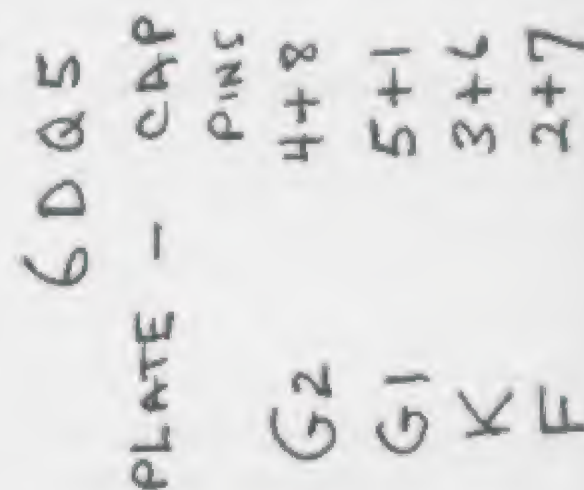 6DQ5
PLATE - CAP
PINS
G2 4+8
G1 5+1
K 3+6
F 2+7